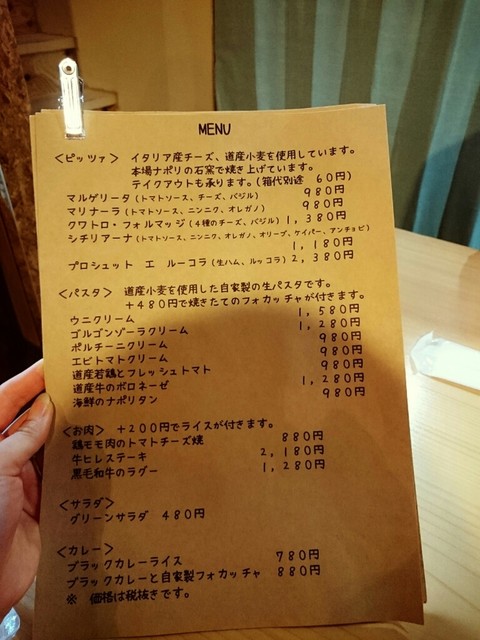 MENU
<ピッツァ> イタリア産チーズ、道産小麦を使用しています。
本場ナポリの石窯で焼き上げています。
テイクアウトも承ります。(箱代別途 60円)
マルゲリータ(トマトソース、チーズ、バジル) 980円
マリナーラ(トマトソース、ニンニク、オレガノ) 980円
クワトロ・フォルマッジ(4種のチーズ、バジル) 1,380円
シチリアーナ(トマトソース、ニンニク、オレガノ、オリーブ、ケイパー、アンチョビ)
1,180円
プロシュット エ ルーコラ(生ハム、ルッコラ) 2,380円
<パスタ> 道産小麦を使用した自家製の生パスタです。
+480円で焼きたてのフォカッチャが付きます。
ウニクリーム 1,580円
ゴルゴンゾーラクリーム 1,280円
ポルチーニクリーム 980円
エビトマトクリーム 980円
道産若鶏とフレッシュトマト 980円
道産牛のボロネーゼ 1,280円
海鮮のナポリタン 980円
<お肉> +200円でライスが付きます。
鶏モモ肉のトマトチーズ焼 880円
牛ヒレステーキ 2,180円
黒毛和牛のラグー 1,280円
<サラダ>
グリーンサラダ 480円
<カレー>
ブラックカレーライス 780円
ブラックカレーと自家製フォカッチャ 880円
※ 価格は税抜きです。